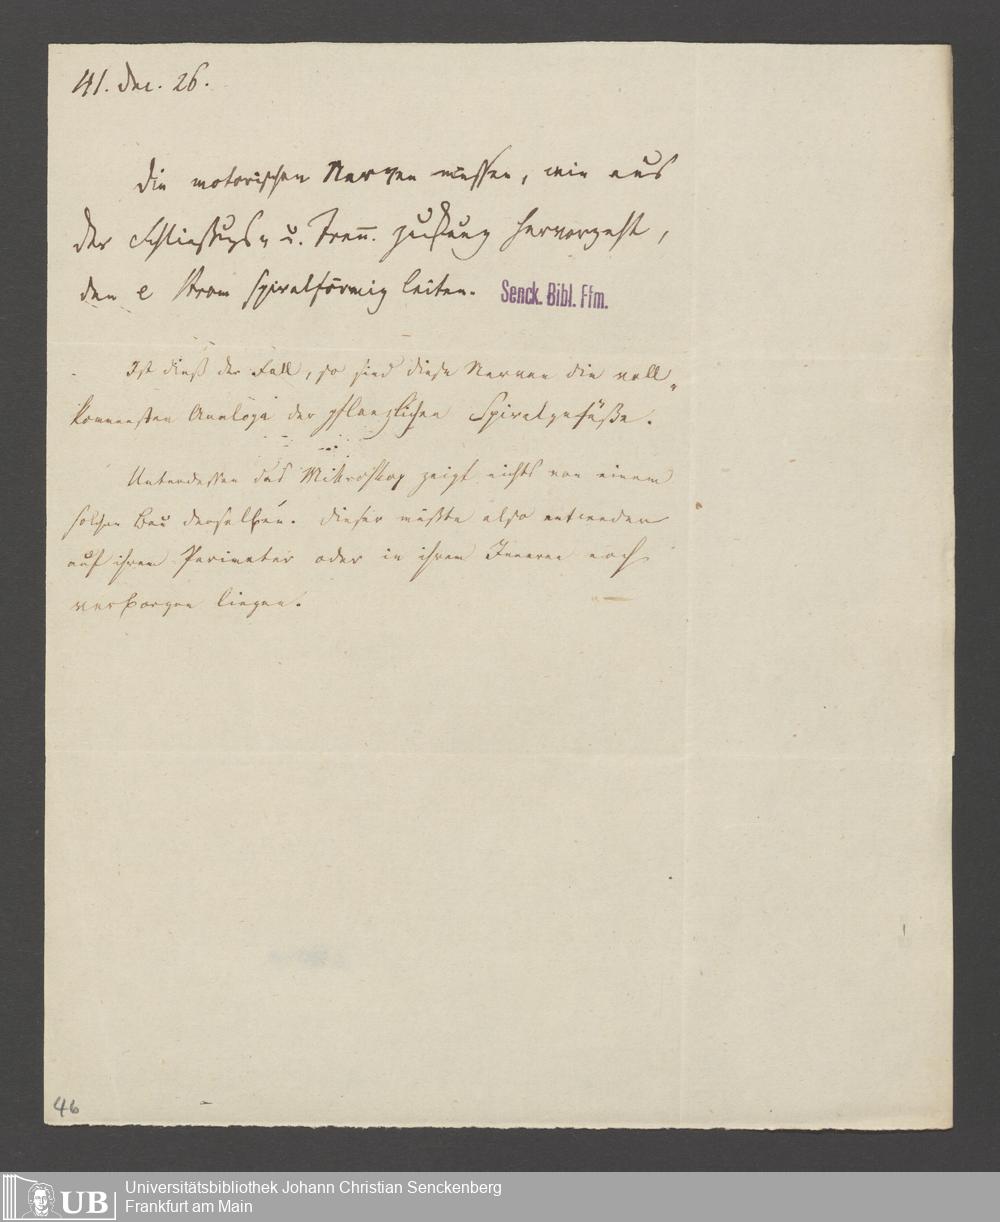 41. Dec. 26.
Die motorischen Nerven müssen, wie aus
der Schließugs- u. Treñ. Zuckung hervorgeht,
den e Strom spiralförmig leiten.
Senck. Bibl. Ffm.
Ist dieß der Fall, so sind diese Nerven die voll-
kommensten Analoga der pflanzlichen Spiralgefäße.
Unterdessen das Mikroskop zeigt nichts von einem
solchen Bau derselben. Dieser müßte also entweder
auf ihrem Perimeter oder in ihrem Inneren noch
verborgen liegen.
46
UB
Universitätsbibliothek Johann Christian Senckenberg
Frankfurt am Main